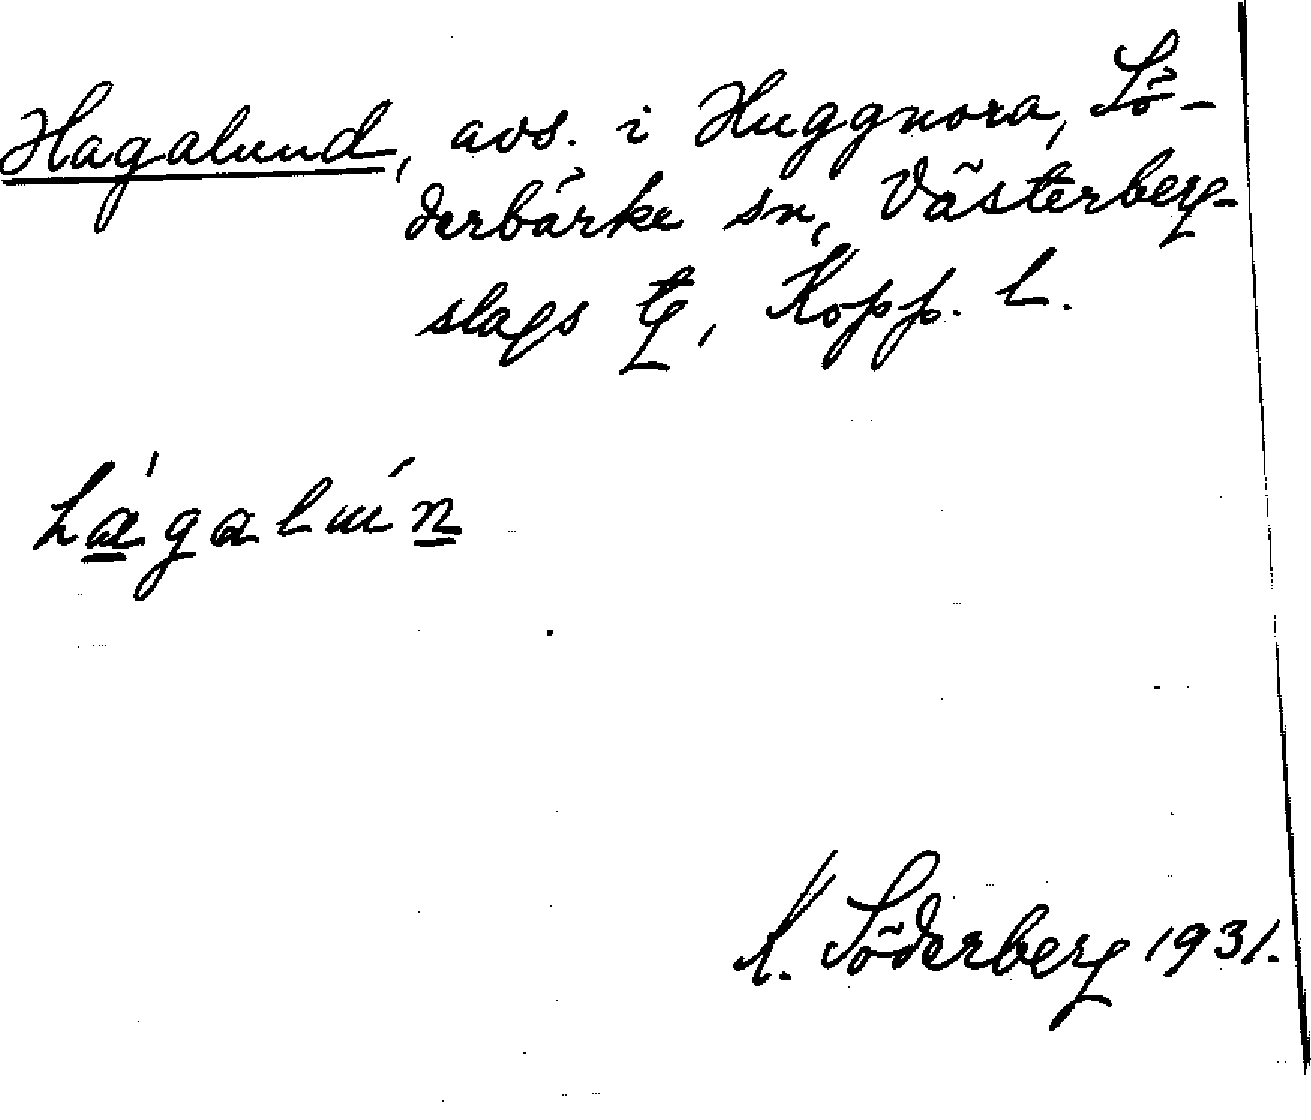 Hagalund, avs. i Huggnora, Sö-
derbärke sn, Västerberg-
slags tg, Kopp. l.
hágalún
K. Söderberg 1931.